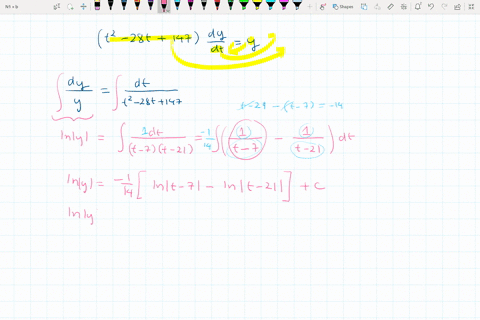 Shapes
(t² - 28t + 147) dy/dt = y
∫ dy/y = ∫ dt/(t² - 28t + 147)
t - 21 - (t - 7) = -14
ln|y| = ∫ 1dt/((t-7)(t-21)) = -1/14 ∫ (1/(t-7) - 1/(t-21)) dt
ln|y| = -1/14 [ ln|t-7| - ln|t-21| ] + C
ln|y